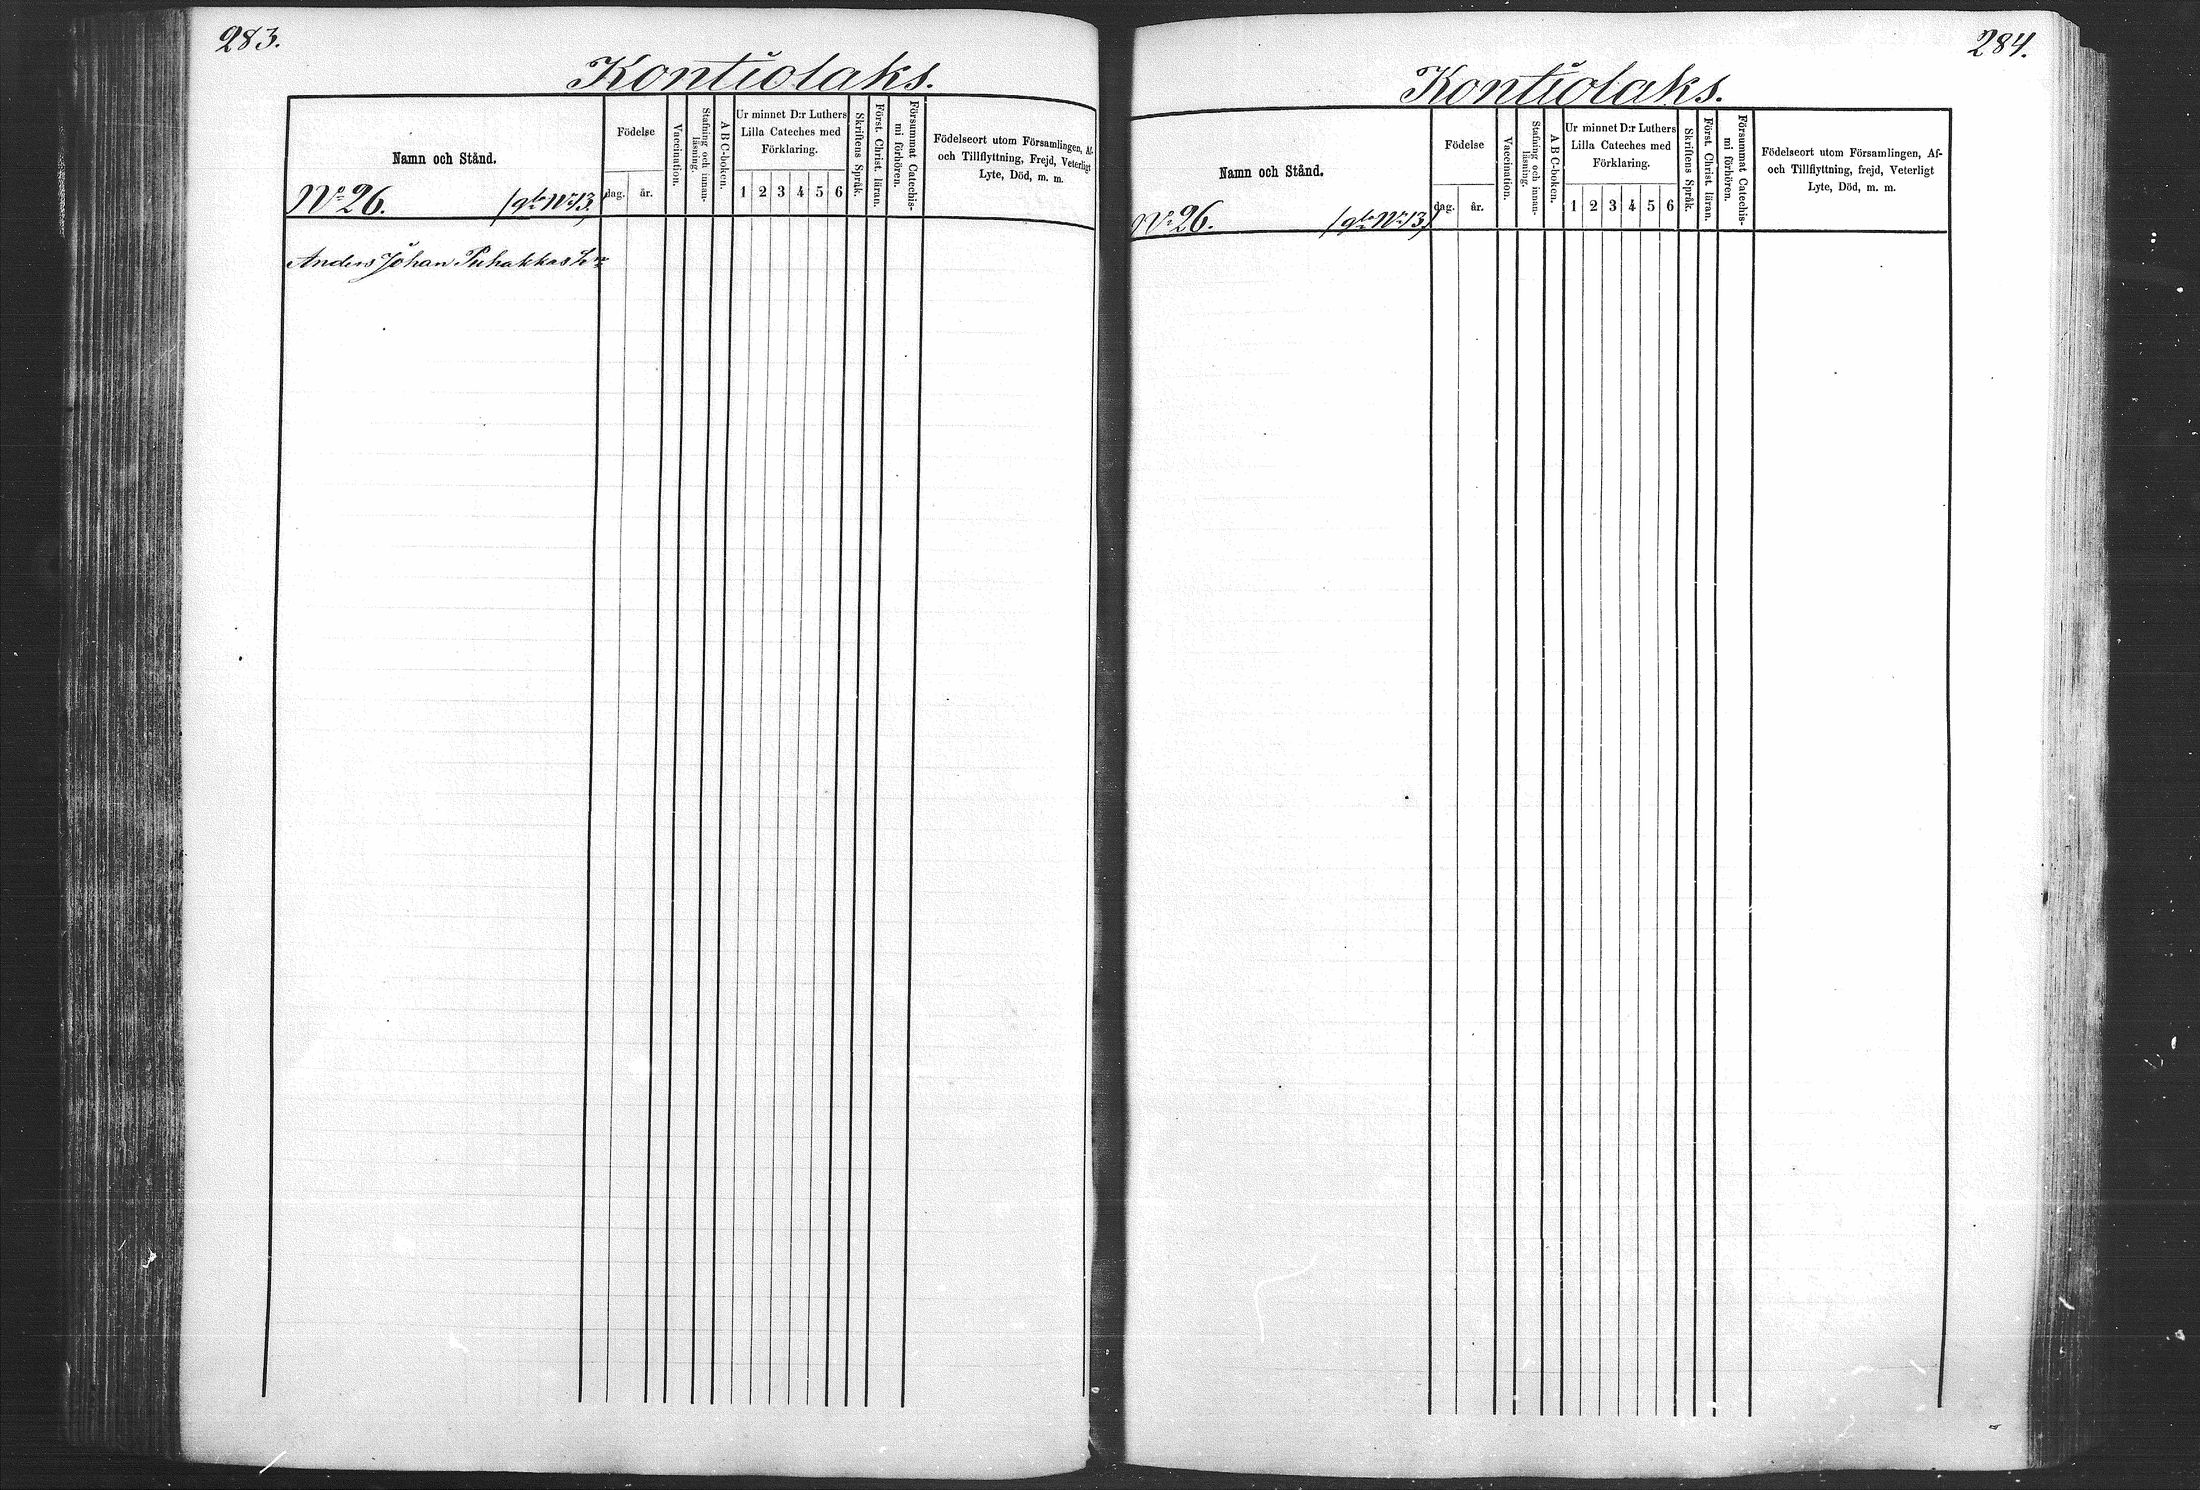 283.
Kontiolaks.
Namn och Stånd.
No 26. (gla No 13.)
Födelse
dag. år.
Vaccination.
Stafning och innan-
läsning.
A B C-boken.
Ur minnet D:r Luthers
Lilla Cateches med
Förklaring.
1 2 3 4 5 6
Skriftens Språk.
Först. Christ. läran.
Försummat Catechis-
mi förhören.
Födelseort utom Församlingen, Af-
och Tillflyttning, Frejd, Veterligt
Lyte, Död, m. m.
Anders Johan Puhakkas
284.
Kontiolaks.
Namn och Stånd.
No 26. (gla No 13)
Födelse
dag. år.
Vaccination.
Stafning och innan-
läsning.
A B C-boken.
Ur minnet D:r Luthers
Lilla Cateches med
Förklaring.
1 2 3 4 5 6
Skriftens Språk.
Först. Christ. läran.
Försummat Catechis-
mi förhören.
Födelseort utom Församlingen, Af-
och Tillflyttning, frejd, Veterligt
Lyte, Död, m. m.